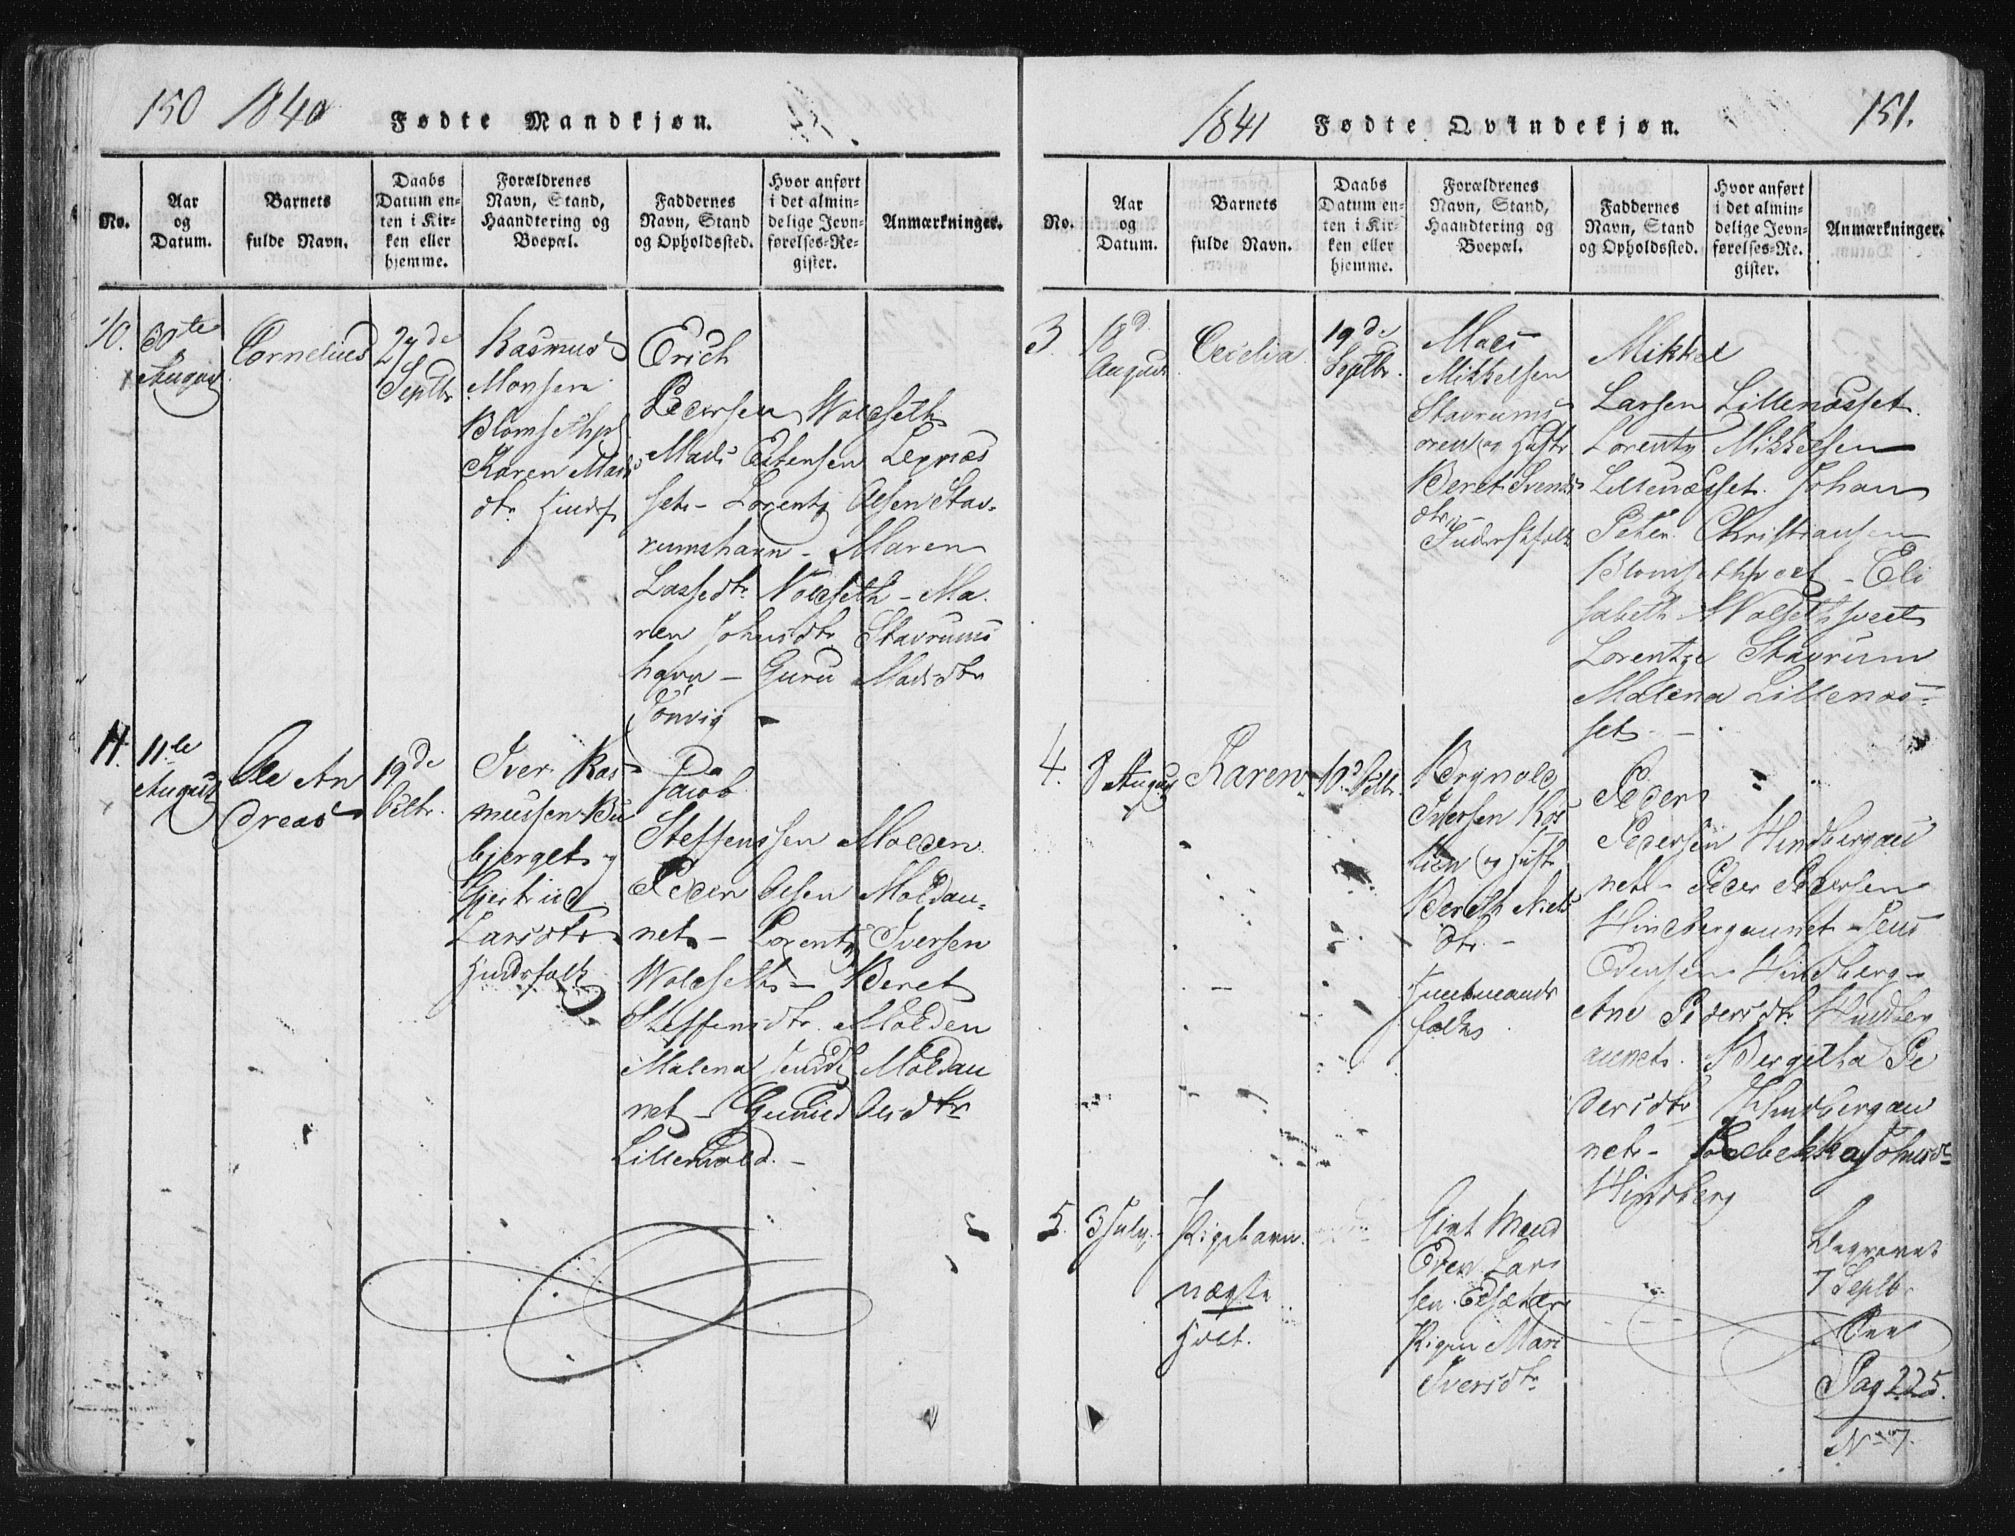 150 1840 Fødte Mandkjøn.
No.
Aar og Datum.
Barnets fulde Navn.
Daabs Datum enten i Kirken eller hjemme.
Forældrenes Navn, Stand, Haandtering og Boepæl.
Faddernes Navn, Stand og Opholdssted.
Hvor anført i det almindelige Jevnførelses-Register.
Anmærkninger.
10.
30te
August
Cornelius
27de
Septbr
Rasmus
Monsen
Blomsethpl
Karen Mads
dtr
Erich
Pedersen Woldseth
Mads Estensen Legnæs
set - Lorentz Olsen Stav-
rumshavn - Maren
Lassedtr Woldseth - Ma
ren Johnsdtr Stavrums
havn - Guru Madsdtr
Tønvig
11.
11te
August
Ole An
dreas
19de
Septbr.
Iver Ras
mussen Bu
bjerget og
Gjertrud
Larsdtr
Huusfolk
Jacob
Steffenssen Molden
Peder Olsen Moldau-
net - Lorentz Iversen
Woldseth - Beret
Steffensdtr Molden
Malena Jensdtr Moldau
net - Gunild Olsdtr
Lillemold. -
1841 Fødte Qvindekjøn. 151.
No.
Aar og Datum.
Barnets fulde Navn.
Daabs Datum enten i Kirken eller hjemme.
Forældrenes Navn, Stand, Haandtering og Boepæl.
Faddernes Navn, Stand og Opholdssted.
Hvor anført i det almindelige Jevnførelses-Register.
Anmærkninger.
3
18d
August
Cecelia
19de
Septbr.
Mads
Mikkelsen
Stavrums
ören og Hustr
Beret Svends
dtr. -
Mikkel
Larsen Lillenæsset.
Lorentz Mikkelsen
Lillenæsset. Johan
Peter Christiansen
Blomsethpeel - Eli
sabeth Wolsethsveet
Lorentze Stavrum
Malena Lillenæs-
set -
4.
8 August
Karen
Brynold
Iversen Kos
lien og Hustr
Bereth Niels
dtr. -
Huusmands
folks
Peder
Pedersen Hindbergau
net - Peder Pedersen
Hindbergaunet - Jens
Edensen Hindberg -
Ane Pedersdtr Hindberg
aunet. Bergitha Pe
dersdtr Hindbergau
net - Rebekka Johnsdtr
Hindberg
5.
3 July.
Pigebarn
nægte
Gift Mand
Even Lars
sen Edsæter
Pigen Mari
Iversdtr
Begravet
7 Septbr
See
Pag 225.
No 7.